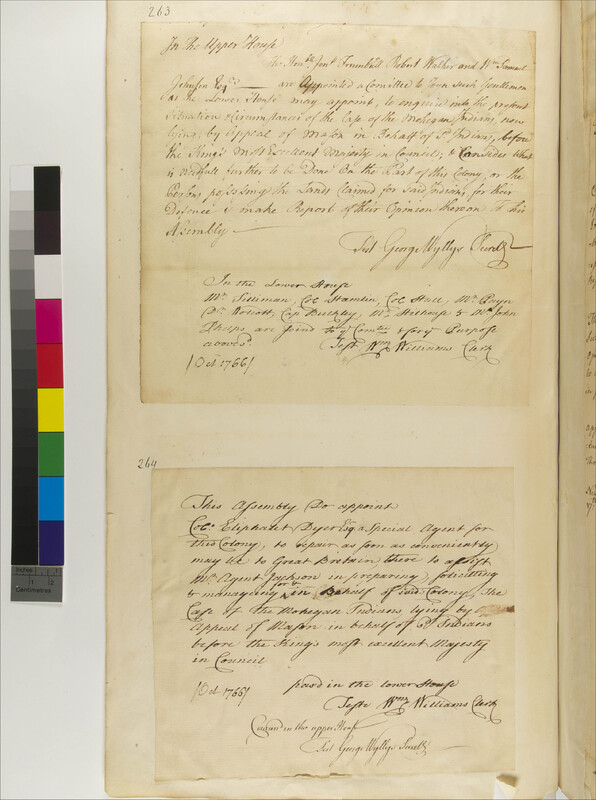 263
In the Upper House
The Honble Jont. Trumbull Robert Walker and Wm. Samuel
Johnson Esqrs. are Appointed a Comittee to Joyn Such Gentlemen
as the Lower House may appoint, to enquire into the present
Situation & Circumstances of the Case of the Mohegan Indians now
lying, by Appeal of Mason in Behalf of sd. Indians, before
the King's Most Excellent Majesty in Council; & Consider what
is needfull further to be Done On the Part of this Colony, or the
Persons possessing the Lands Claimed for Said Indians, for their
Defence & make Report of their Opinion thereon to this
Assembly
Test George Wyllys Secrety
In the Lower House
Mr. Silliman, Col. Hamlin, Col. Hall, Mr. Payn
Dr. Wolcott, Cap Bulkley, Mr. & Mr. John
Phelps are joined to ye Comtee for ye Purpose
abovesd. Test Wm Williams Clerk
[Oct 1766]
264
This Assembly Do appoint
Colo. Eliphalet Dyer Esq a Special Agent for
this Colony, to repair as soon as conveniently
may be to Great Britain there to assist
Mr. Agent Jackson in preparing, soliciting
& managing for & in Behalf of said Colony, The
Case of the Mohegan Indians lying by
Appeal of Mason in behalf of sd Indians
before the King's most excellent Majesty
in Council
[Oct 1766] pass'd in the lower House
Teste Wm Williams Clerk
in the upper House
Test George Wyllys Secrety
Inches
1
2
Centimetres